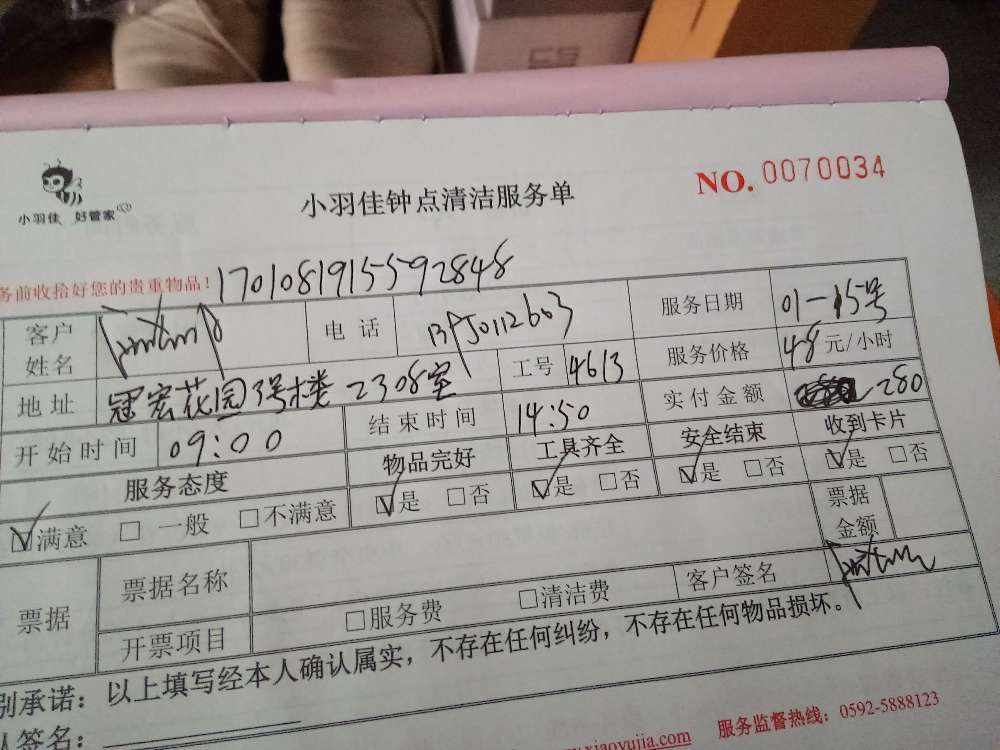 小羽佳 好管家
小羽佳钟点清洁服务单
NO. 0070034
务前收拾好您的贵重物品! 1701081915592848
客户姓名
电话
服务日期 01-15号
地址 冠宏花园3号楼 2308室
工号 4613
服务价格 48元/小时
开始时间 09:00
结束时间 14:50
实付金额 280
服务态度 物品完好 工具齐全 安全结束 收到卡片
☑满意 □一般 □不满意 ☑是 □否 ☑是 □否 ☑是 □否 ☑是 □否
票据 票据名称 票据金额
开票项目 □服务费 □清洁费 客户签名
别承诺:以上填写经本人确认属实,不存在任何纠纷,不存在任何物品损坏。
人签名:
.xiaoyujia.com 服务监督热线:0592-5888123